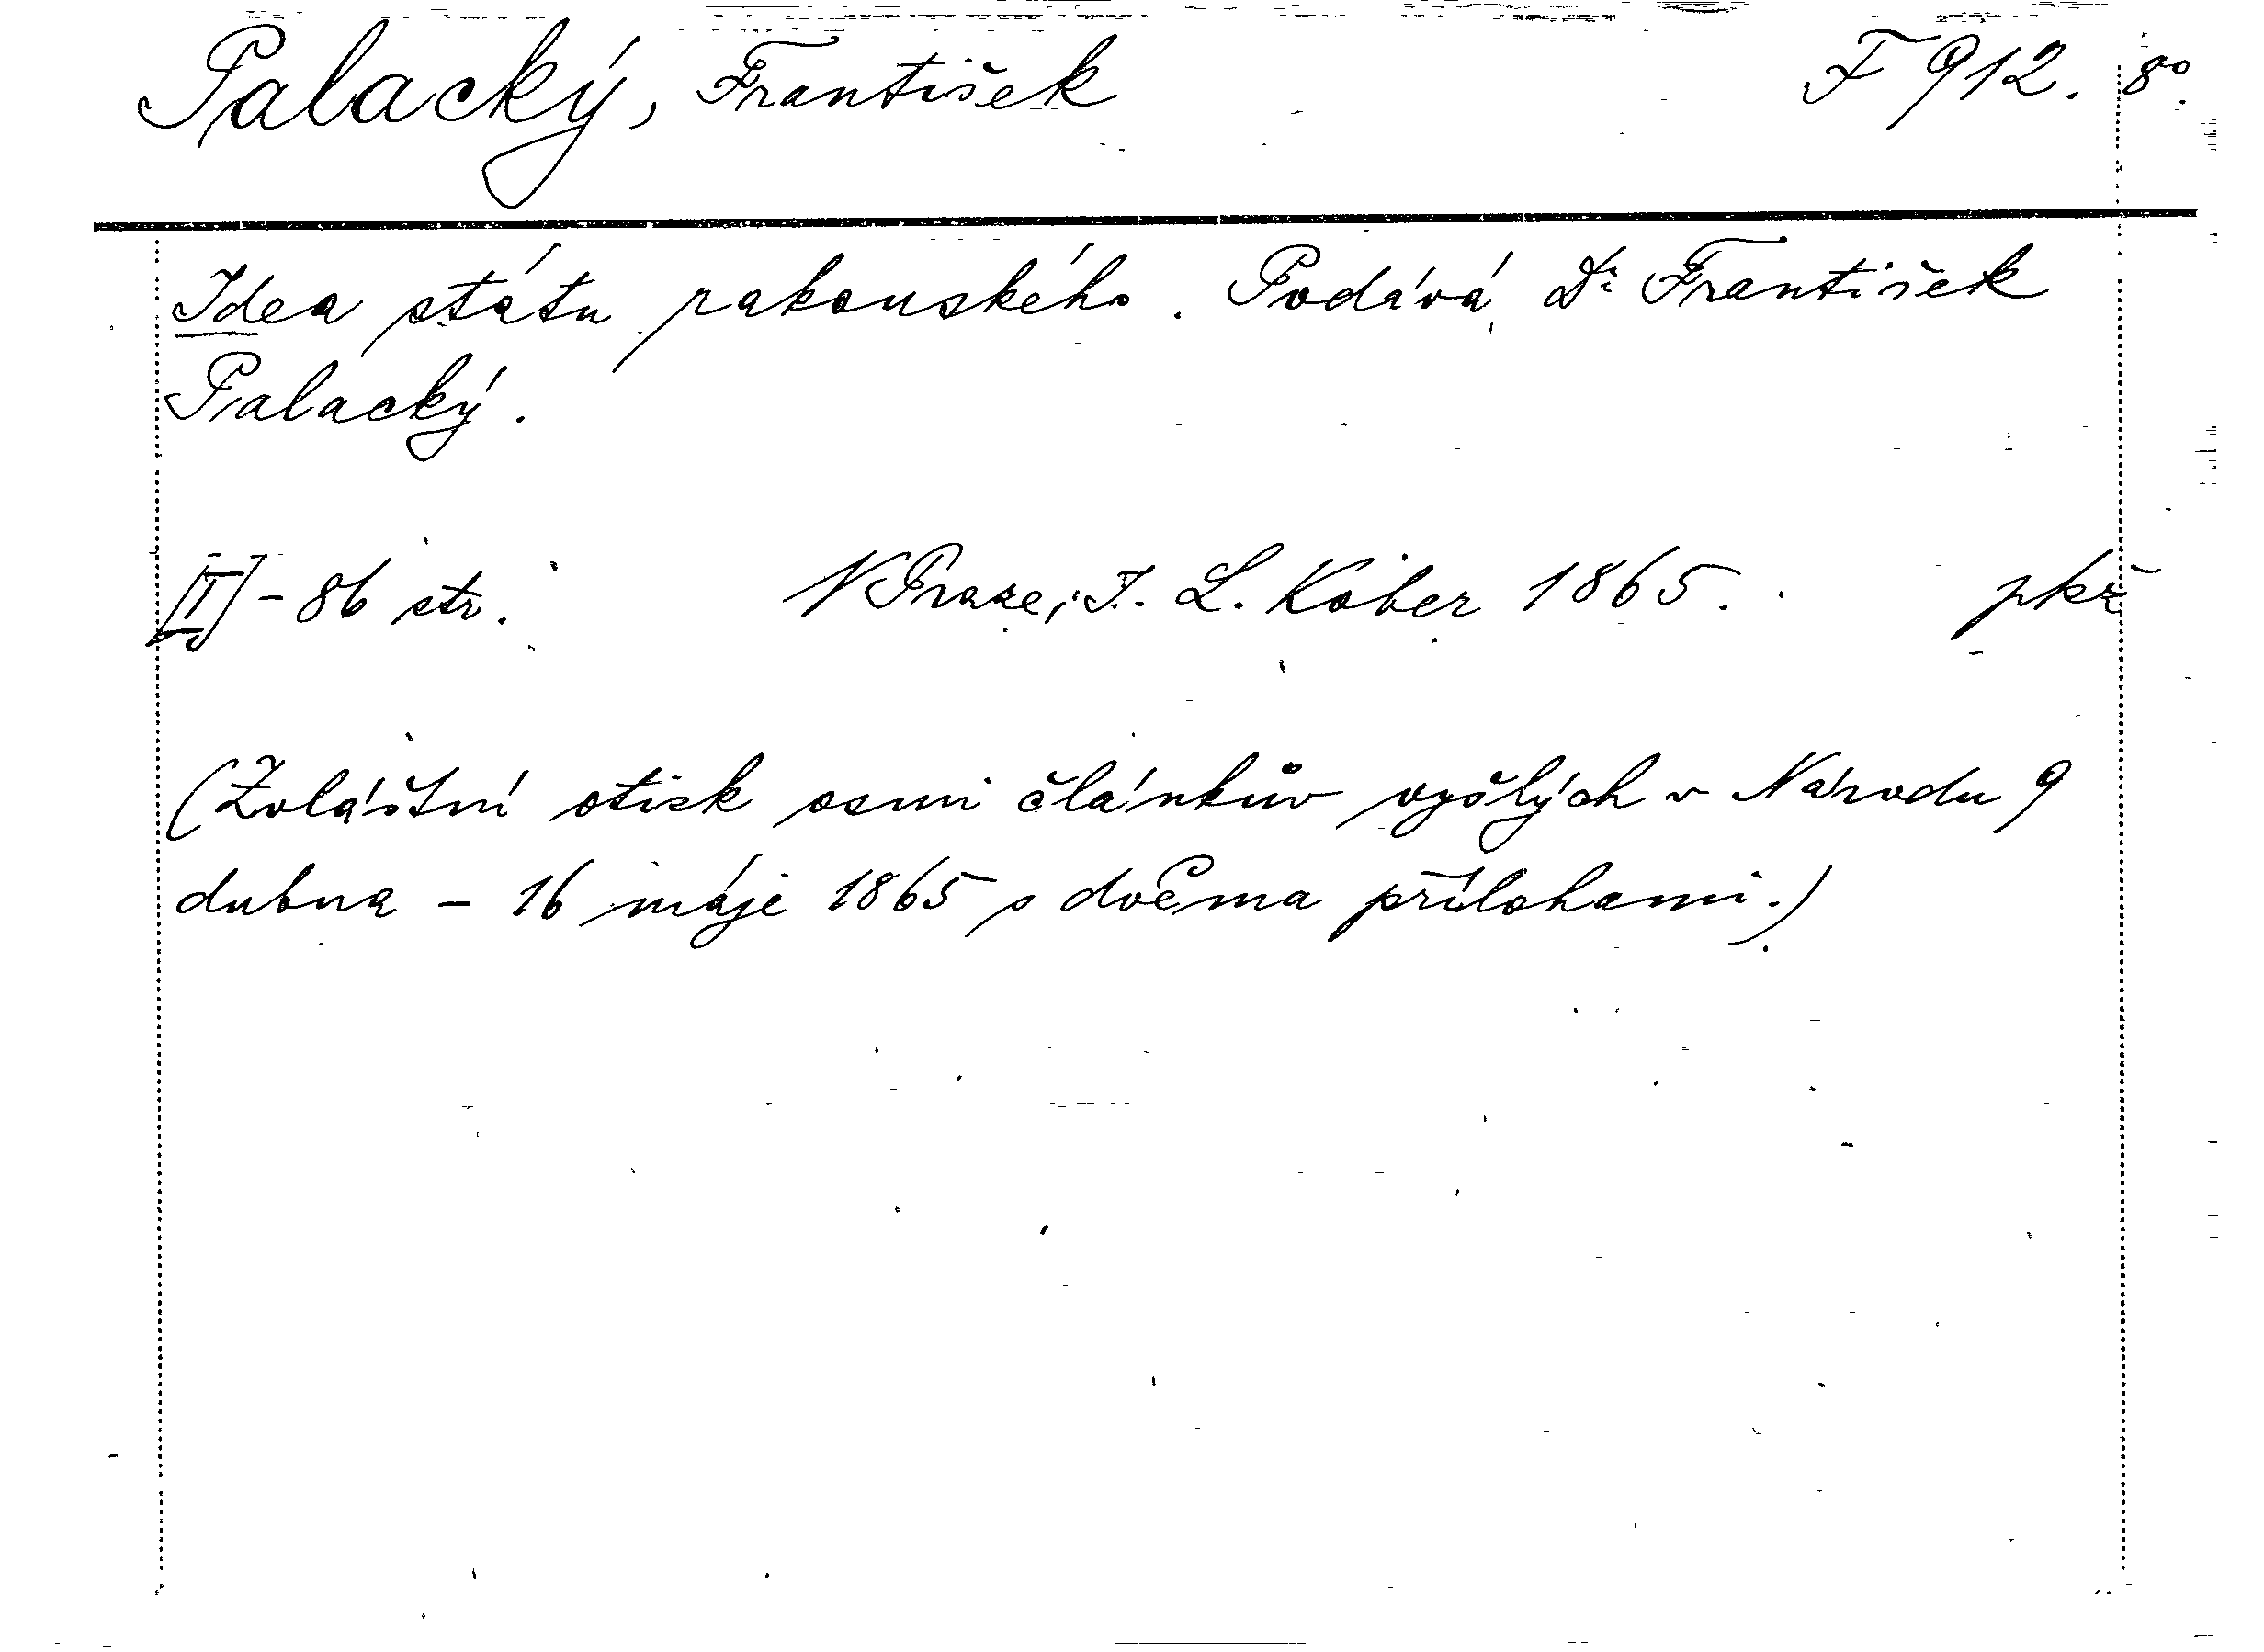 Palacký, František F 912. 8°.
Idea státu rakouského. Podává Dr František
Palacký.
[I] - 86 str. V Praze, I. L. Kober 1865. pkř
(Zvláštní otisk osmi článkův vyšlých v Národu 9
dubna - 16 máje 1865 s dvěma přílohami.)